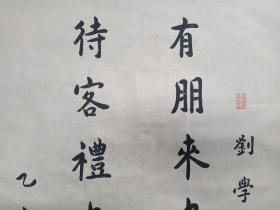 劉學
有朋來
待客禮
乙